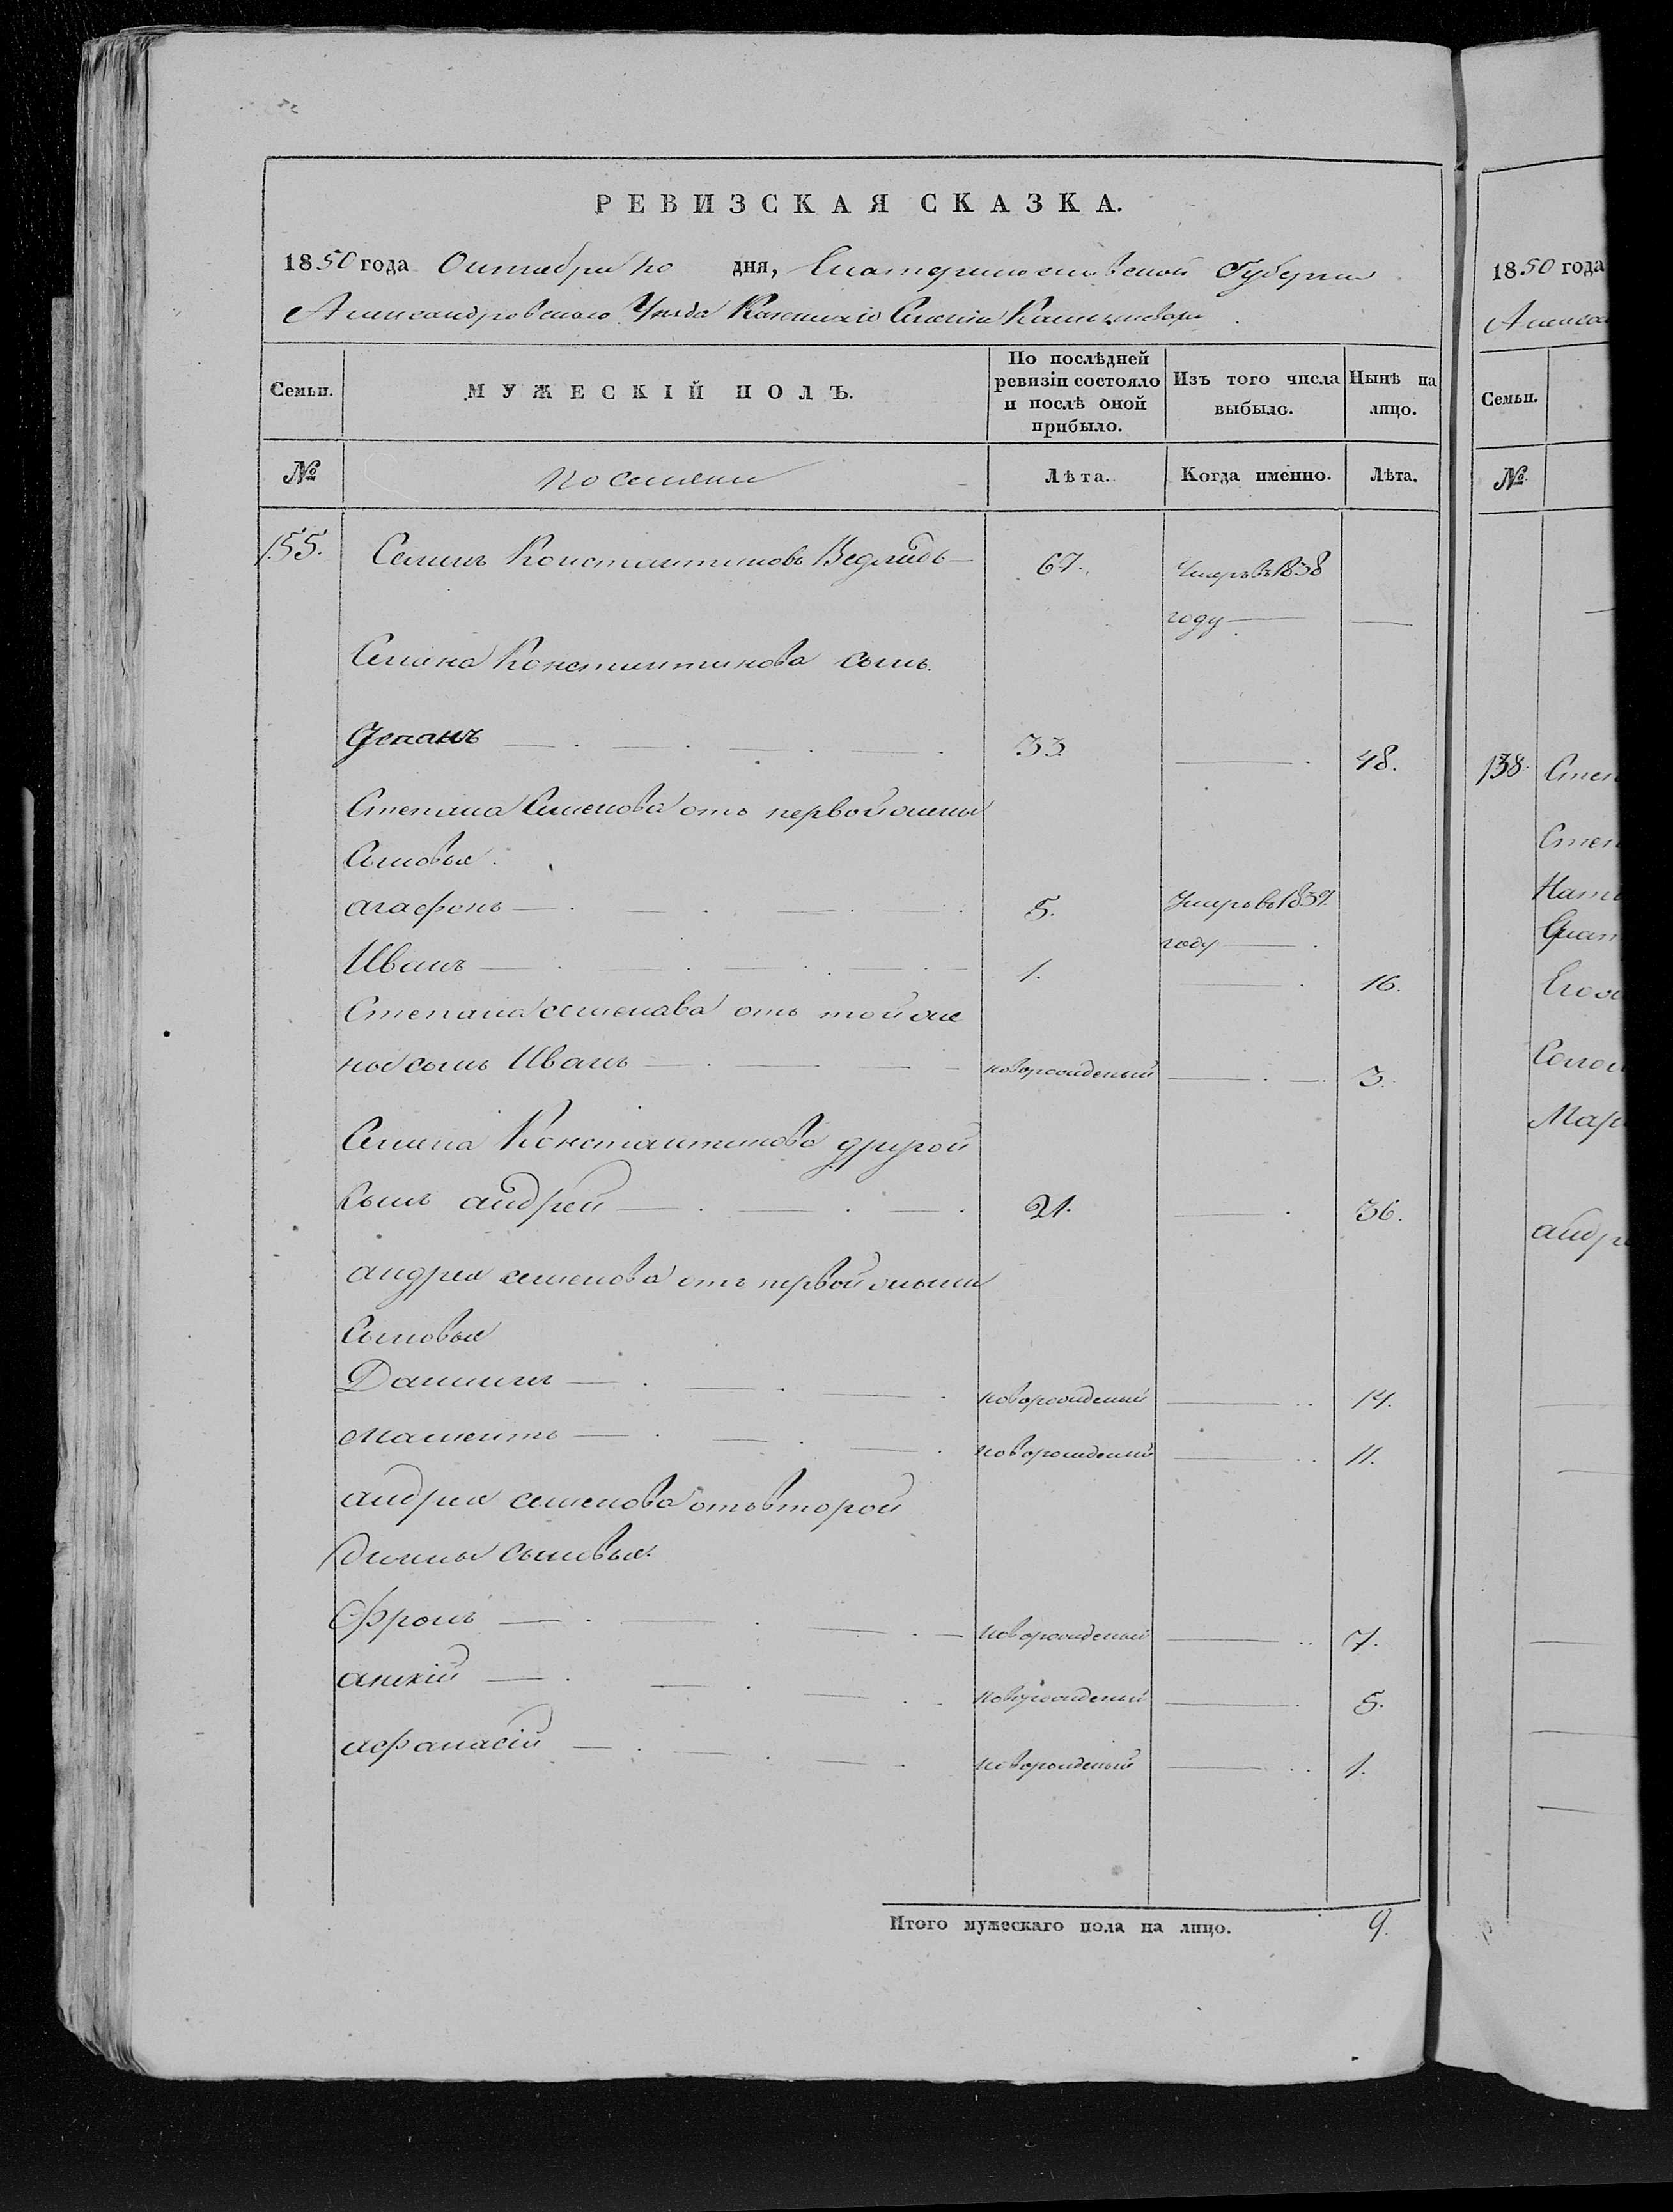 РЕВИЗСКАЯ СКАЗКА.
1850 года Октября дня, Екатеринославской Губернии
Александровскаго Уезда Казеннаго Селенія
Семьи. МУЖЕСКІЙ ПОЛЪ. По послѣдней ревизіи состояло и послѣ оной прибыло. Изъ того числа выбыло. Нынѣ на лицо.
№ Лѣта. Когда именно. Лѣта.
155. Семенъ Константиновъ 67. Умеръ въ 1838
году
Семена Константинова сынъ
33. 48.
Степана Семенова отъ первой жены
Сыновья.
агафонъ 5. Умеръ въ 1839.
году
Иванъ 1. 16.
Степана семенова отъ той же
ны сынъ Иванъ новорожденый 3.
Семена Константинова другой
сынъ андрей 21. 36.
андрея семенова отъ первой жены
Сыновья
Даниилъ новорожденый 14.
новорожденый 11.
андрея семенова отъ второй
жены сыновья
Фролъ новорожденый 7.
новорожденый 5.
афанасій новорожденый 1.
Итого мужескаго пола на лицо. 9.
1850 года
Семьи.
№
138.